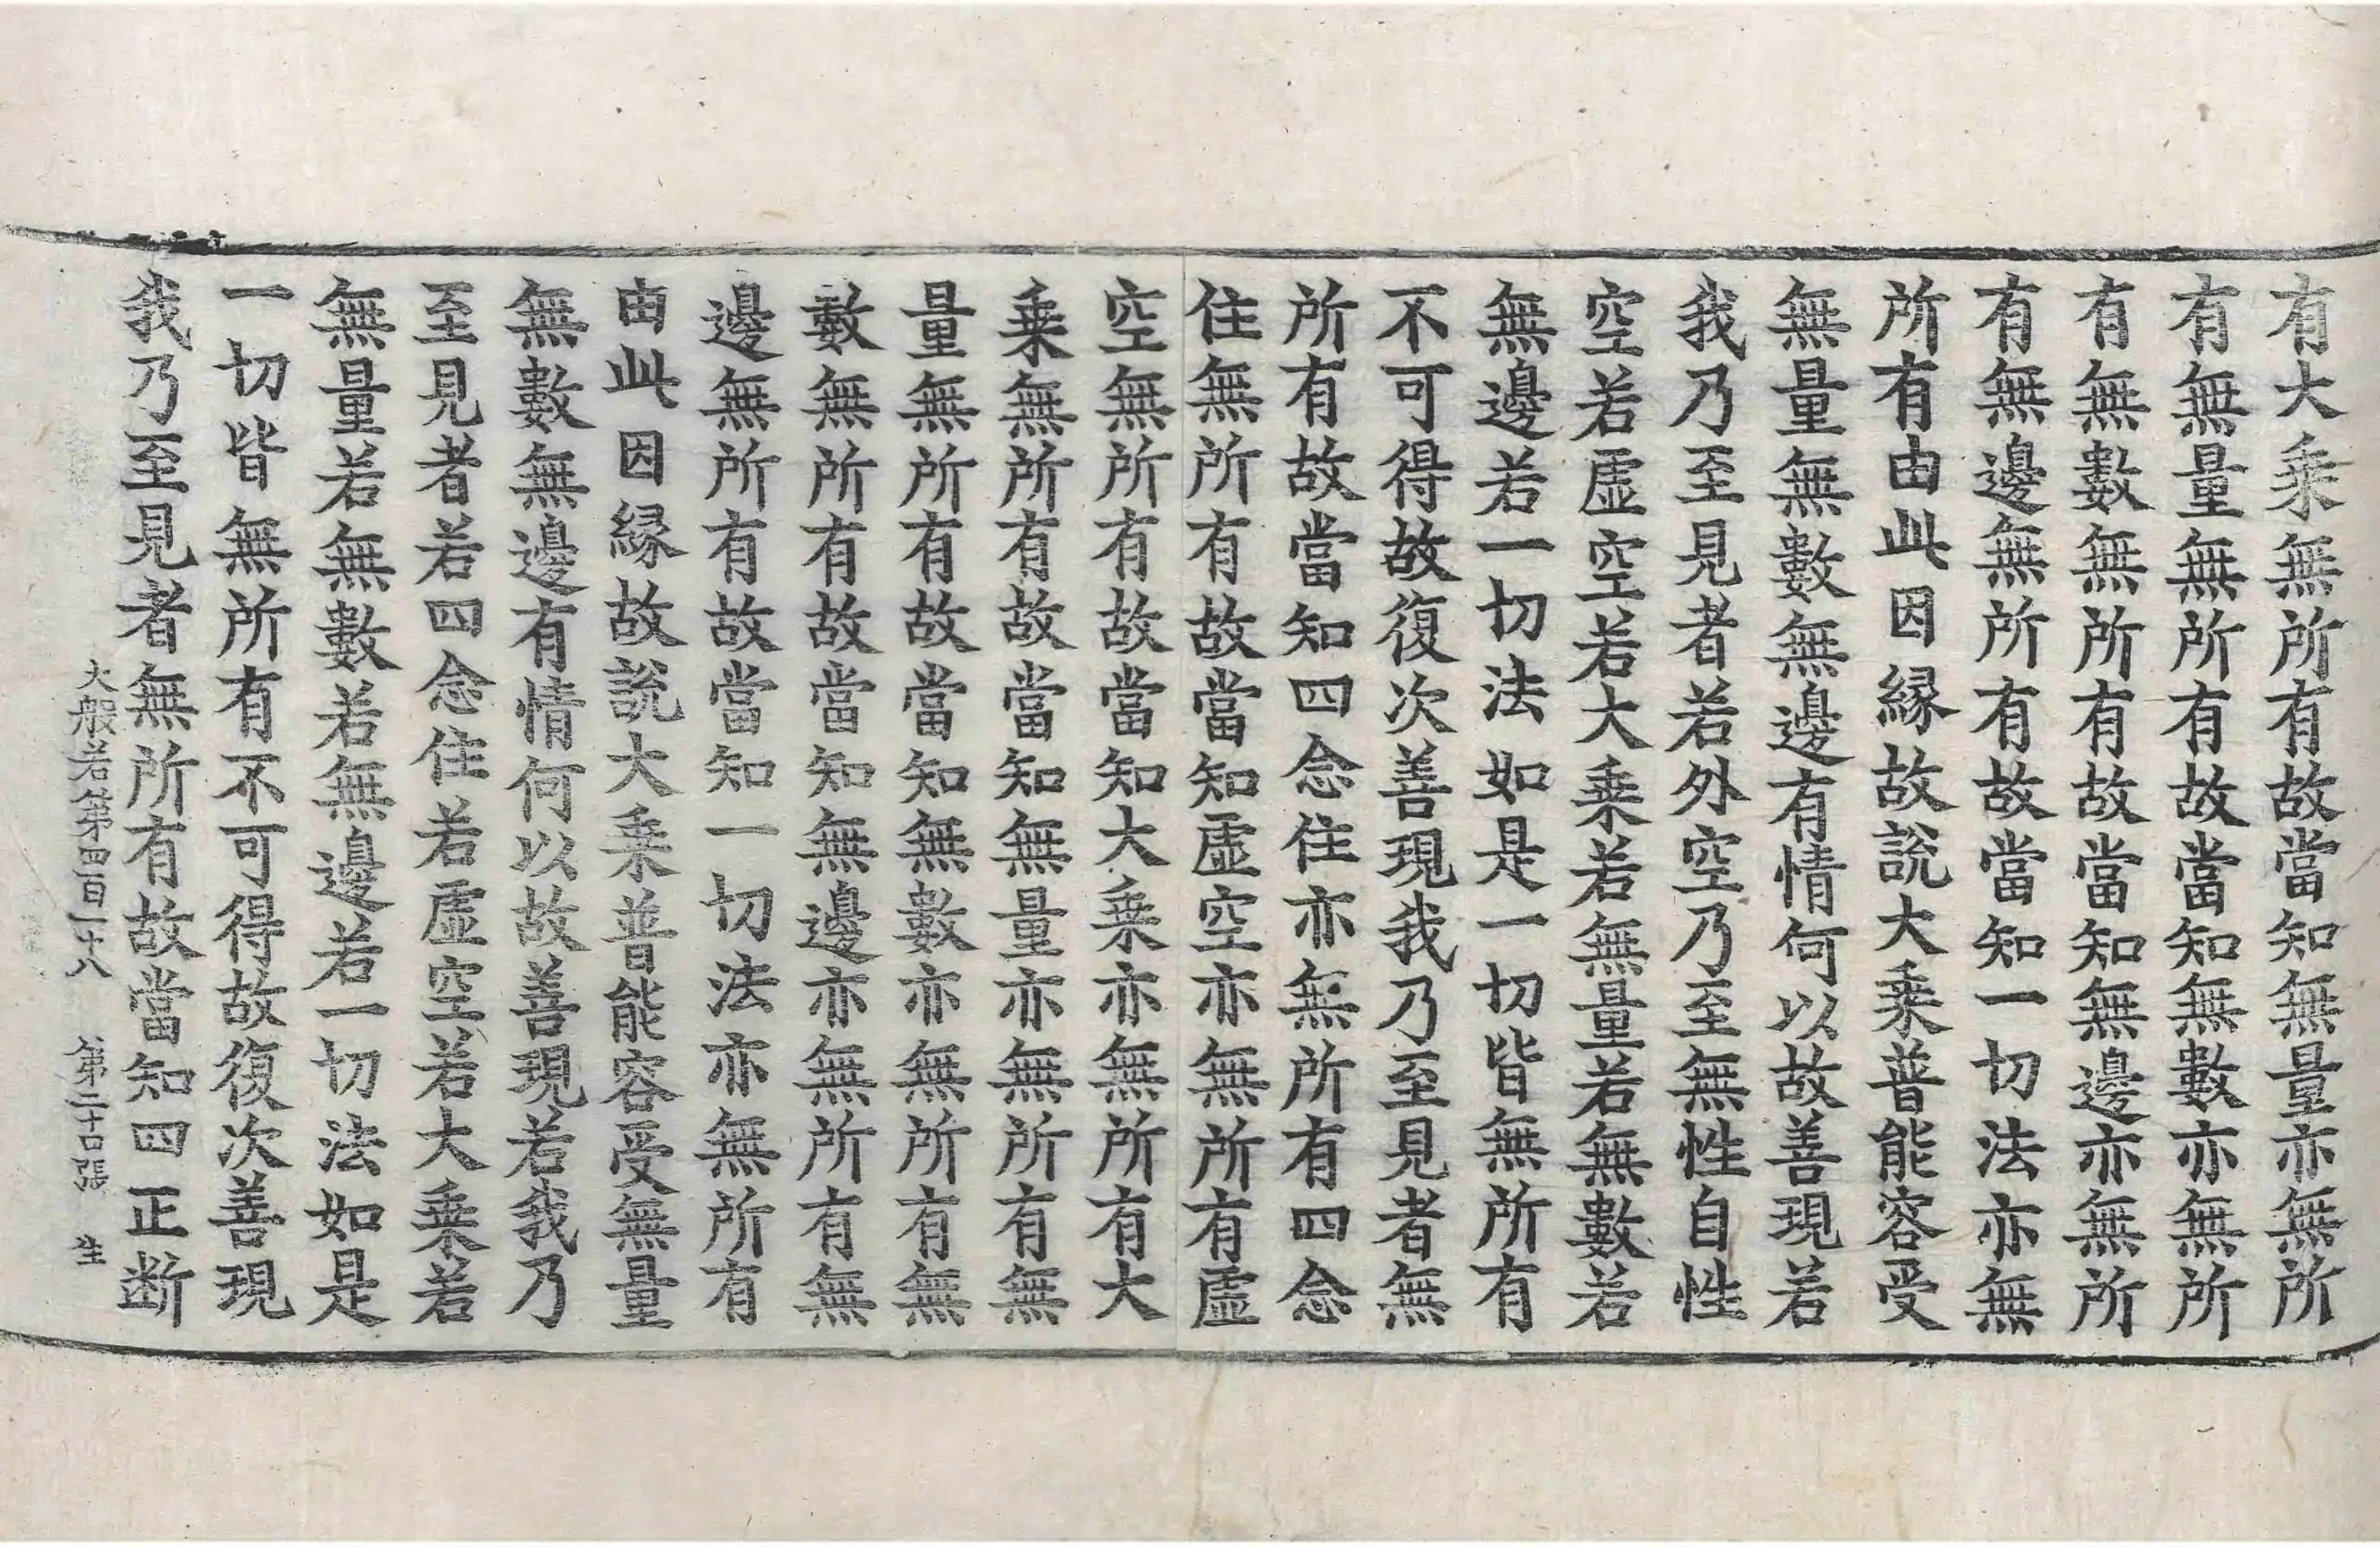 有大乗無所有故當知無量亦無所
有無量無所有故當知無數亦無所
有無數無所有故當知無邊亦無所
有無邊無所有故當知一切法亦無
所有由此因縁故說大乗普能容受
無量無數無邊有情何以故善現若
我乃至見者若外空乃至無性自性
空若虛空若大乗若無量若無數若
無邊若一切法如是一切皆無所有
不可得故復次善現我乃至見者無
所有故當知四念住亦無所有四念
住無所有故當知虛空亦無所有虛
空無所有故當知大乗亦無所有大
乗無所有故當知無量亦無所有無
量無所有故當知無數亦無所有無
數無所有故當知無邊亦無所有無
邊無所有故當知一切法亦無所有
由此因縁故說大乗普能容受無量
無數無邊有情何以故善現若我乃
至見者若四念住若虛空若大乗若
無量若無數若無邊若一切法如是
一切皆無所有不可得故復次善現
我乃至見者無所有故當知四正断
大般若第四百一十八 第二十張 生